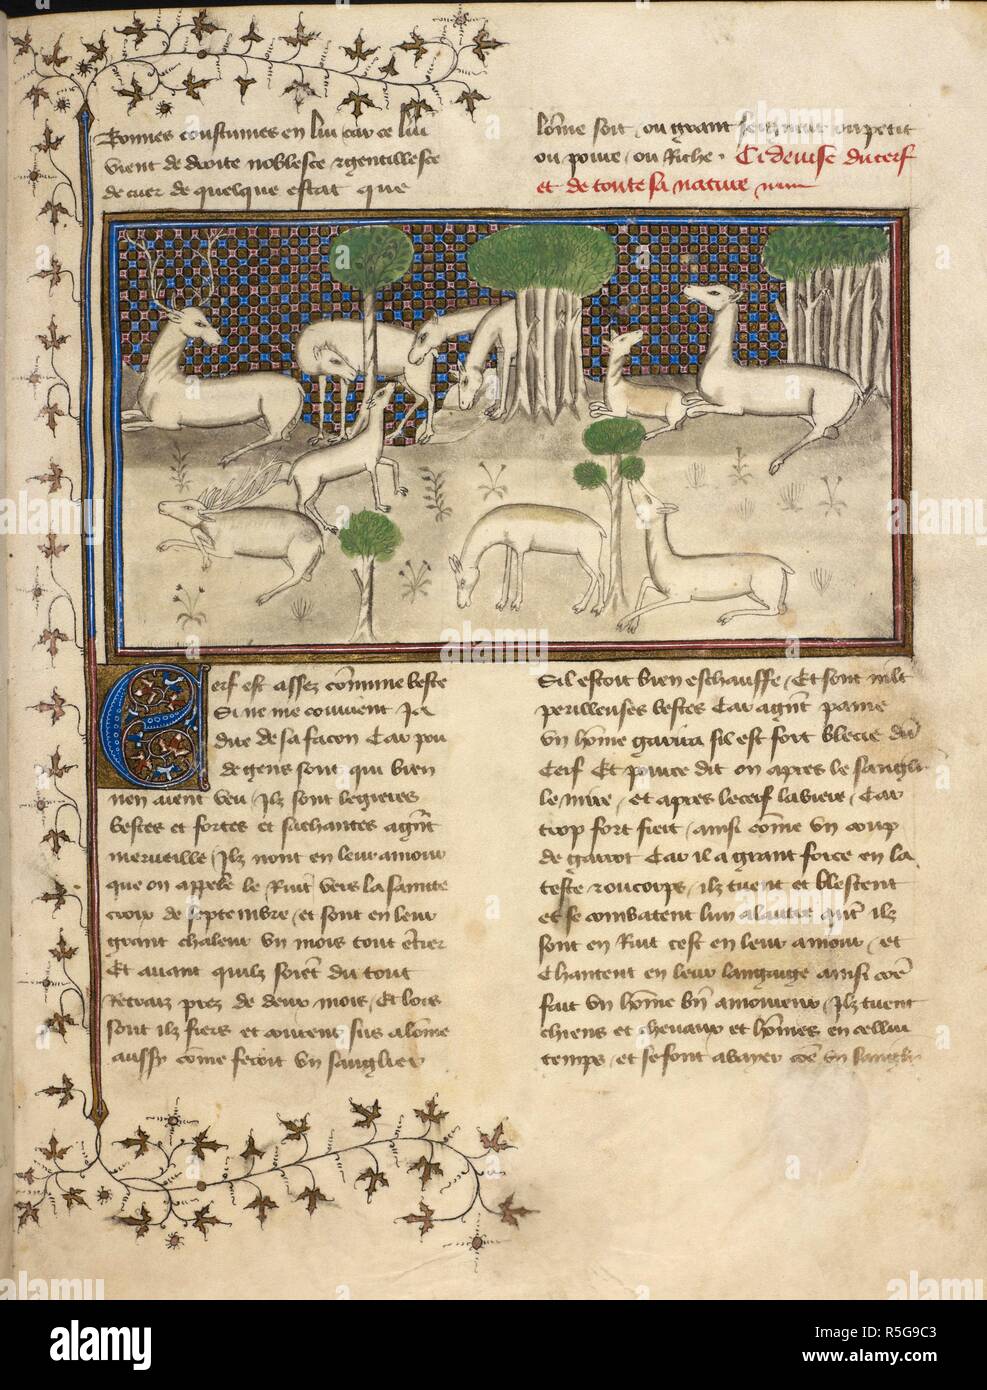 Bonnes coustumes en lui car ce lui
vient de droite noblesce et gentillesce
de cuer de quelque estat que
lõme soit, ou grant seigneur ou petit
ou poure, ou Riche. Ci devise du cerf
et de toute sa nature
Cerf est assez cõmune beste
Si ne me couvient Ja
dire de sa facon Car pou
de gens sont qui bien
nen aient veu, Ilz sont legieres
bestes et fortes et sachantes a
merveille, Ilz vont en leur amour
que on appelle le Ruit vers la sainte
croix de septembre, et sont en leur
grant chaleur un mois tout
Et avant quilz soiẽt du tout
Retraiz prez de deux mois, Et lors
sont ilz fiers et courent sus a lõme
aussy cõme feroit un sanglier
Sil estoit bien eschauffe, Et sont mlt
perilleuses bestes Car a paine
un hõme garira sil est fort blecie du
Cerf Et pource dit on apres le sanglier
le mire, et apres le cerf la biere, Car
trop fort fiert, ainsi cõme un coup
de garrot Car il a grant force en la
teste et ou corps, ilz tuent et blescent
et se combatent lun a lautre quãt ilz
sont en Ruit cest en leur amour, et
Chantent en leur langaige ainsi cõe
fait un hõme bñ amoureux, Ilz tuent
chiens et chevaux et hõmes en cellui
temps, et se font abayer cõe un sanglier
alamy stock photo
a
alamy
Image ID: R5G9C3
www.alamy.com